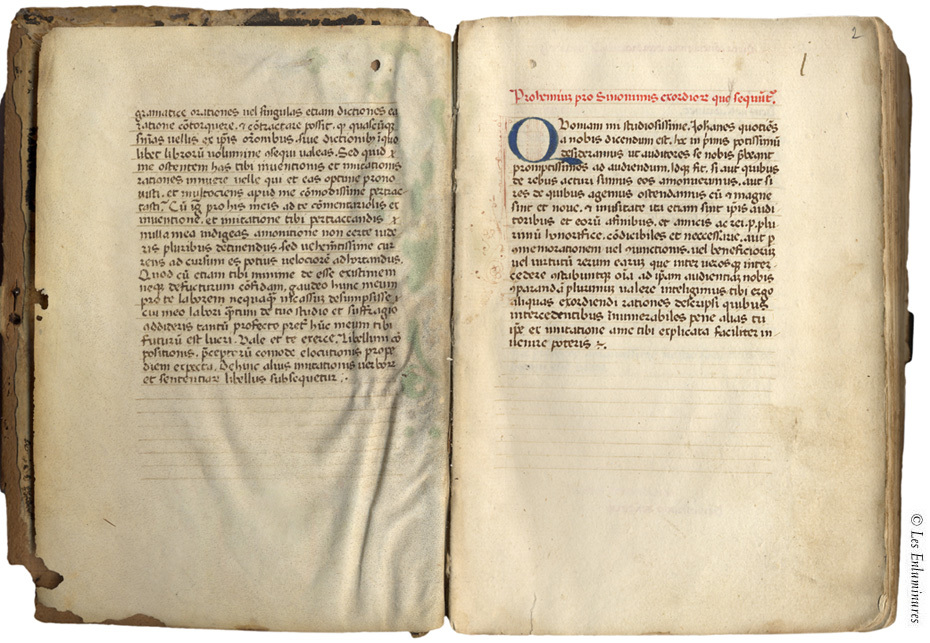 gramatice orationes vel singulas etiam dictiones ea
ratione cōtorquere, ⁊ cōtractare possit, qͥ quascūqꝫ
sn̄ias vellis ex ip̄is orōnibus, siue dictionibꝫ ī quo
libet librorū volumine asequi valeas. Sed quid
me ostentem has tibi inventionis et imitationis
rationes inuigte velle qui et eas optime prono
uisti, et multociens apud me cōmodissime pertrac
tasti. Cū igͥ pro his meis ad te cōmentariolis et
inuentione, et imitatione tibi pertractandis ⁊
nulla mea indigeas amonitione non certe uide
ris pluribus detinendus sed vehemētissime cur
rens ad cursum es potius velociorē adhortandus.
Quod cū etiam tibi minime de esse existimem
neqꝫ defucturum confidam, gaudeo hunc meum
pro te laborem nequaqꝫ incassuꝫ desumpsisse,
cui meo labori qͣntum de tuo studio et suffragio
addideris tantū profecto pretͥ hūc meum tibi
futurū est lucri. Vale et te exerce. Libellum cō
positionis, p̄ceptorū comode elocutionis prope
diem expecta. Dehinc alius imitationis verborꝫ
et sententiarꝫ libellus subsequetur.
2
1
Prohemiuꝫ pro Sinonimis exordiorꝫ que sequūtͬ.
QVoniam mi studiosissime. Johanes quotiēs
a nobis dicendum est, hec in p̄mis potissimū
desideramus ut auditores se nobis p̄beant
promptissimos ad audiendum, Idqꝫ fit, si aut quibus
de rebus acturi simus eos amonuerimus, aut si
res de quibus agemus ostendamus cū ⁊ magne
sint et noue, ⁊ inusitate ita etiam sint ip̄is audi
toribus et eorū affinibus, et amicis ac rei .p. plu
rimū honorifice, cōdicibiles et neccessarie, aut p
cōmemorationem vel cūiunctionis, vel beneficiorū
vel virtutū rerum earuꝫ que inter uerosqꝫ inter
cedere ostabuntqꝫ oīa, ad ip̄am audientiaꝫ nobis
cōparandā plurimuꝫ valere inteligimus tibi ergo
aliquas exordiendi rationes descripsi quibus
intercedentibus īnumerabiles pene alias tu
ip̄e ex imitatione a me tibi explicata faciliter in
uenire poteris
© Les Enluminures